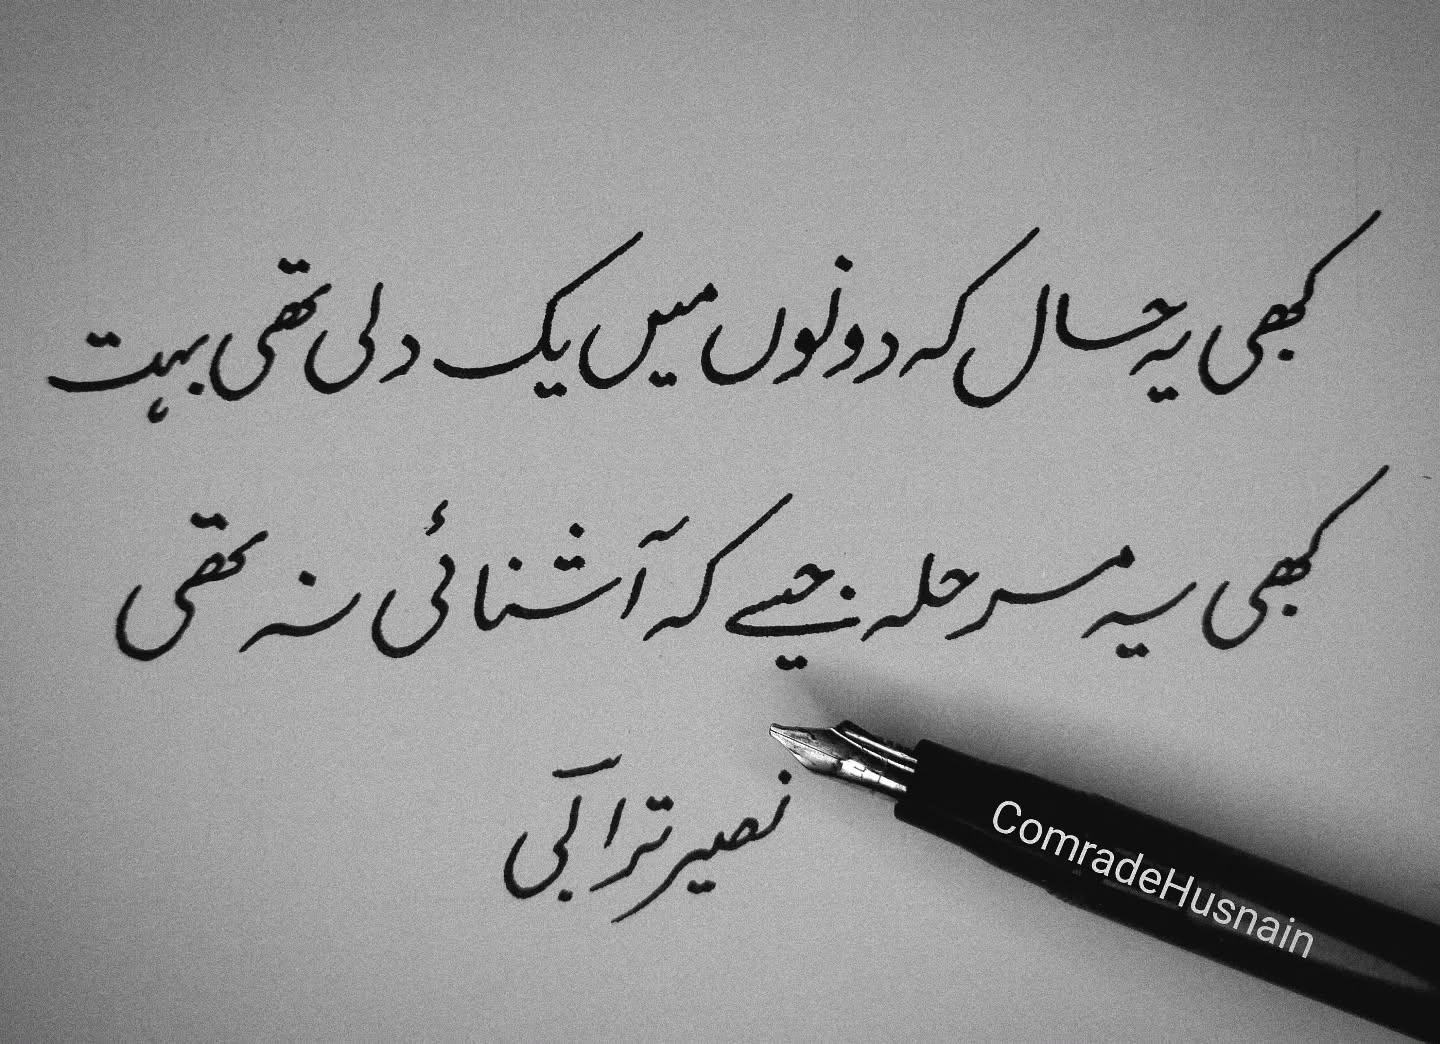 کبھی یہ حال کہ دونوں میں یک دلی تھی بہت
کبھی یہ مرحلہ جیسے کہ آشنائی نہ تھی
نصیر ترابی
ComradeHusnain